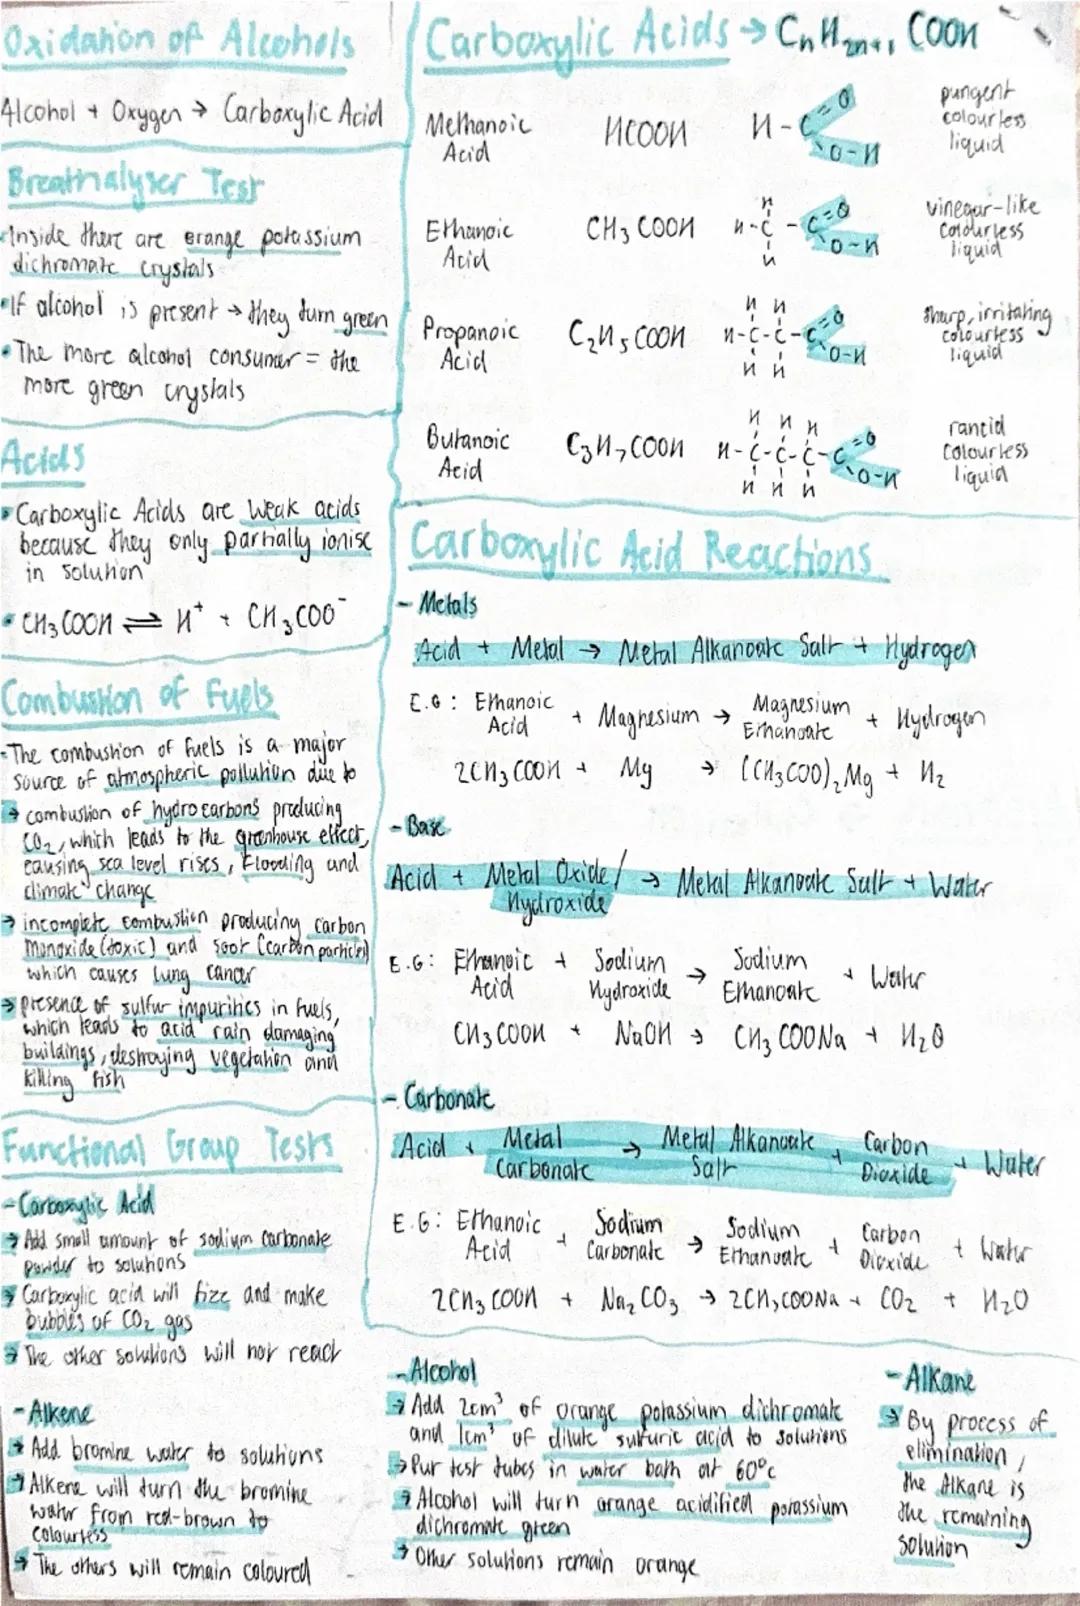 Oxidation of Alcohols
Alcohol + Oxygen → Carboxylic Acid
Breathalyser Test
•Inside there are orange potassium
dichromate crystals
•If alcohol is present → they turn green
•The more alcohol consumer = the
more green crystals
Acids
•Carboxylic Acids are weak acids
because they only partially ionise
in solution
•CH₃COOH ⇌ H⁺ + CH₃COO⁻
Combustion of Fuels
-The combustion of fuels is a major
source of atmospheric pollution due to
→ combustion of hydrocarbons producing
CO₂, which leads to the greenhouse effect,
causing sea level rises, flooding and
climate change
→ incomplete combustion producing carbon
monoxide (toxic) and soot (carbon particles)
which causes lung cancer
→ presence of sulfur impurities in fuels,
which leads to acid rain damaging
buildings, destroying vegetation and
killing fish
Functional Group Tests
-Carboxylic Acid
→ Add small amount of sodium carbonate
powder to solutions
→ Carboxylic acid will fizz and make
bubbles of CO₂ gas
→ The other solutions will not react
-Alkene
→ Add bromine water to solutions
→ Alkene will turn the bromine
water from red-brown to
colourless
→ The others will remain coloured
Carboxylic Acids → CₙH₂ₙ₊₁ COOH
Methanoic HCOOH H-C=O pungent
Acid O-H colourless
liquid
Ethanoic CH₃COOH H-C-C=O vinegar-like
Acid H H O-H colourless
liquid
Propanoic C₂H₅COOH H-C-C-C=O sharp, irritating
Acid H H H H O-H colourless
liquid
Butanoic C₃H₇COOH H-C-C-C-C=O rancid
Acid H H H H H H O-H colourless
liquid
Carboxylic Acid Reactions
- Metals
Acid + Metal → Metal Alkanoate Salt + Hydrogen
E.G: Ethanoic Acid + Magnesium → Magnesium Ethanoate + Hydrogen
2CH₃COOH + Mg → (CH₃COO)₂Mg + H₂
- Base
Acid + Metal Oxide/ Hydroxide → Metal Alkanoate Salt + Water
E.G: Ethanoic Acid + Sodium Hydroxide → Sodium Ethanoate + Water
CH₃COOH + NaOH → CH₃COONa + H₂O
- Carbonate
Acid + Metal Carbonate → Metal Alkanoate Salt + Carbon Dioxide + Water
E.G: Ethanoic Acid + Sodium Carbonate → Sodium Ethanoate + Carbon Dioxide + Water
2CH₃COOH + Na₂CO₃ → 2CH₃COONa + CO₂ + H₂O
-Alcohol
→ Add 2cm³ of orange potassium dichromate
and 1cm³ of dilute sulfuric acid to solutions
→ Put test tubes in water bath at 60°c
→ Alcohol will turn orange acidified potassium
dichromate green
→ Other solutions remain orange
-Alkane
→ By process of
elimination,
the Alkane is
the remaining
solution